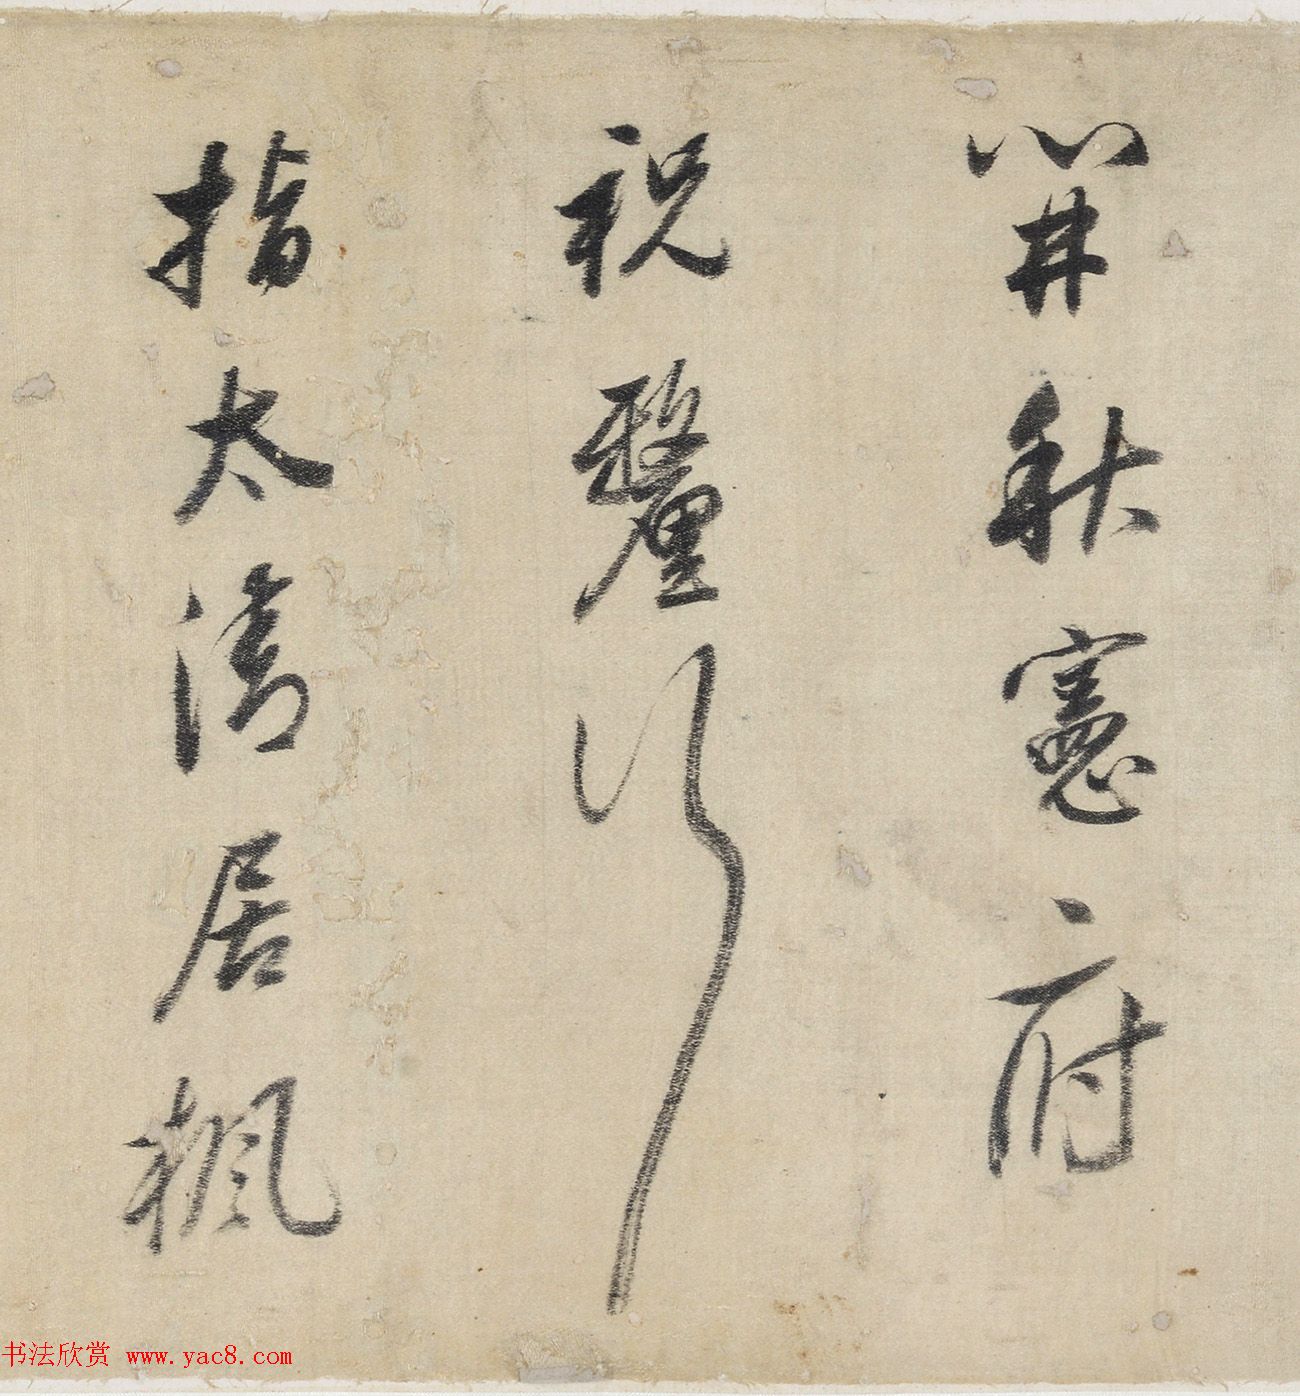 開秋憲府
祝釐行
指太清居楓
书法欣赏 www.yac8.com